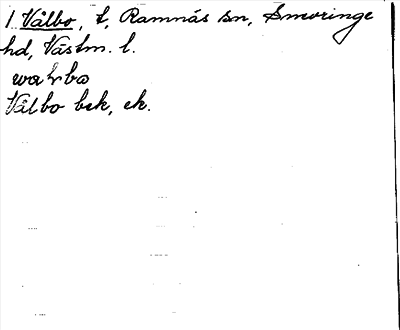 1 Vålbo, t, Ramnäs sn, Snevringe
hd, Västm. l.
Vålbo bek, ek.